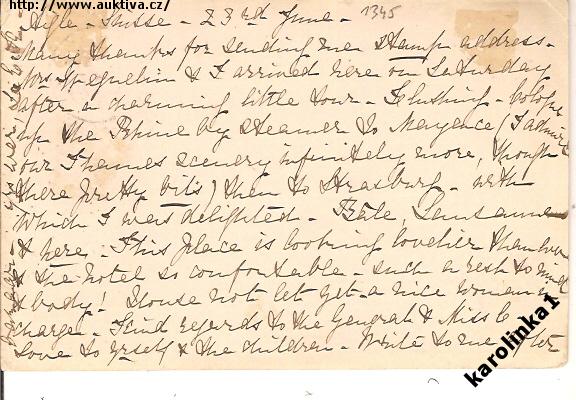 http://www.auktiva.cz/
1345
Aigle - Suisse - 23rd June -
Many thanks for sending me stamp address -
Mrs & I arrived here on Saturday
after a charming little tour - Flushing - Cologne
up the Rhine by steamer to Mayence (I admire
our Thames scenery infinitely more, though
there pretty bits) then to Strasburg - with
which I was delighted - Bâle, Lausanne
& here - This place is looking lovelier than ever
& the hotel so comfortable - such a rest to mind
& body! House not let yet - a nice woman in
charge - Kind regards to the General & Miss C
love to yrself & the children - Write to me
karolinka1